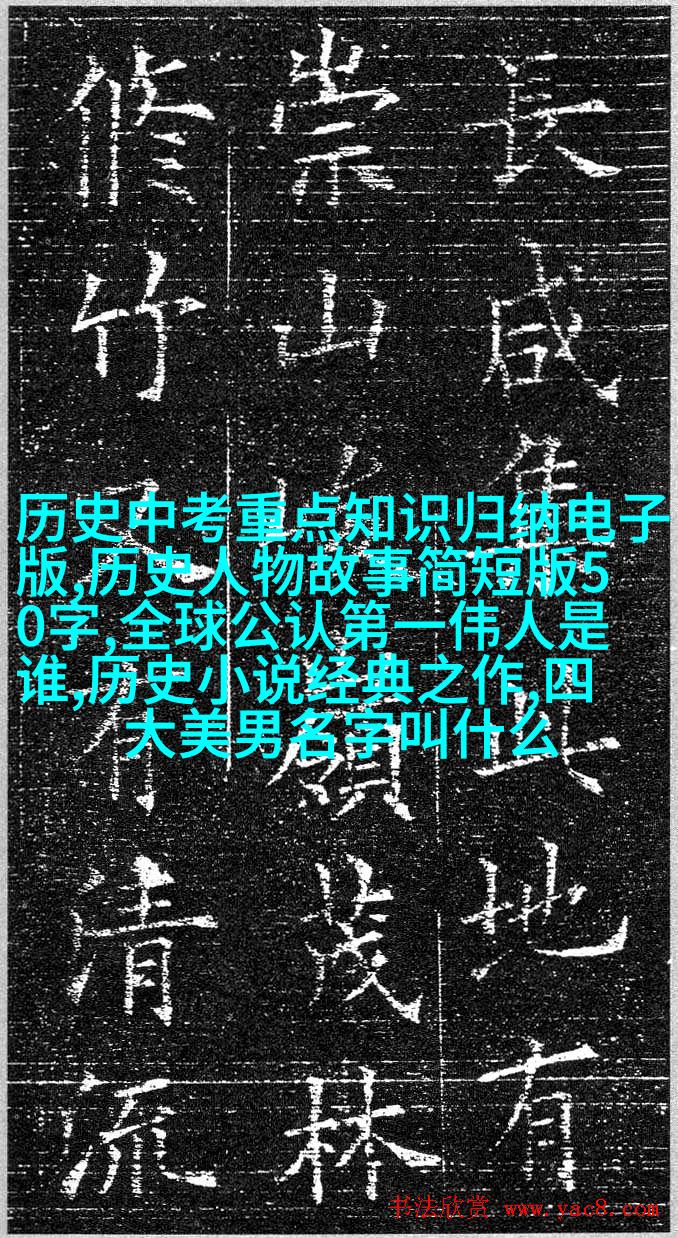 長咸集此地有
崇山峻嶺茂林
脩竹又有清流
历史中考重点知识归纳电子
版,历史人物故事简短版5
0字,全球公认第一伟人是
谁,历史小说经典之作,四
大美男名字叫什么
书法欣赏 www.yac8.com